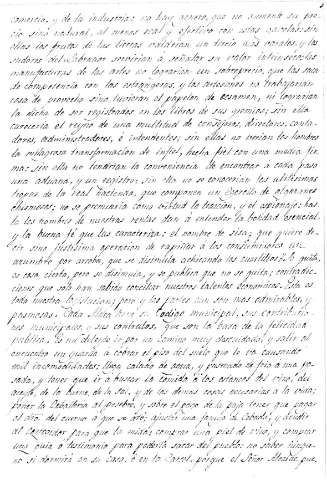 comercio, y de la industria: no hay genero, que no aumente su pre-
cio sino natural, al menos real y efectivo con estas gavelas: sin
ellas los frutos de las tierras valdrian un tercio mas varatos, y los
sudores del Labrador servirian à señalar su valor intrinseco: las
manufacturas de las artes no lograrian un sobreprecio, que las saca
de competencia con los estrangeros, y los artesanos no trabajarian
cosa de provecho sino tuvieran el papelon de examen, ni lograrian
la dicha de ser registrados en los libros de sus gremios; sin ella
careceria el reyno de una multitud de consejeros, directores, conta-
dores, administradores, è intendentes; sin ellas no verian los hombres
la milagrosa transformacion de infiel, hecha fiel con una mera fir-
ma: sin ella no tendrian la conveniencia de encontrar à cada paso
una aduana, y un registro; sin ella no se conocerian los utilisimos
tropas de la real hacienda, que componen un exercito de olgazanes
chismosos; no se premiaria como virtud la traicion, y el espionaje: has-
ta los nombres de nuestras rentas dan à entender la bondad esencial,
y la buena fé que las caracteriza; el nombre de sisa; que quiere de-
cir sino finisima operacion de rapiñas à los consumidores un
azumbre por arroba, que se disimula achicando los cuartillos? Lo quita,
es cosa cierta, pero se disimula, y se publica que no se quita; contradic-
ciones que solo han sabido conciliar nuestros talentos economicos. Esta es
toda nuestra legislacion; pero las partes aun son mas admirables, y
pasmosas. Toda Alta tiene su codigo municipal, sus contribucio-
nes municipales, y sus estatutos, que son la basa de la felicidad
publica. Es un deleyte ir por un camino muy descuidado, y salir al
encuentro un guarda à cobrar el piso del suelo que le va causando
mil incomodidades: llega calado de agua, y pasmado de frio à una po-
sada, y tener que ir à buscar la comida à los estancos del vino, del
aceyte, de la carne, de la sal, y de las demas cosas necesarias à la vida;
poner la Caballeria al pesebre, y sobre el peso de la paja tener que pagar
el año del cuerno à que se ató; ajustar una fanega de Cebada, y acudir
al Corredor para que la mida; comprar una piel de vino, y comprar
una guia ò testimonio para poderla sacar del pueblo: no saber ningu-
no si dormirá en su casa, ò en la Carcel, porque el Señor Alcalde pue-